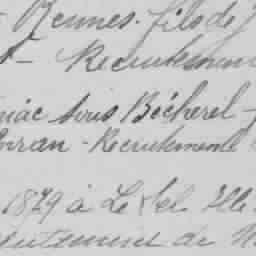 - Rennes. fils de
- Recrutement
niac sous Bécherel -
vran - Recrutement
1879 à Le Sel Ille
de